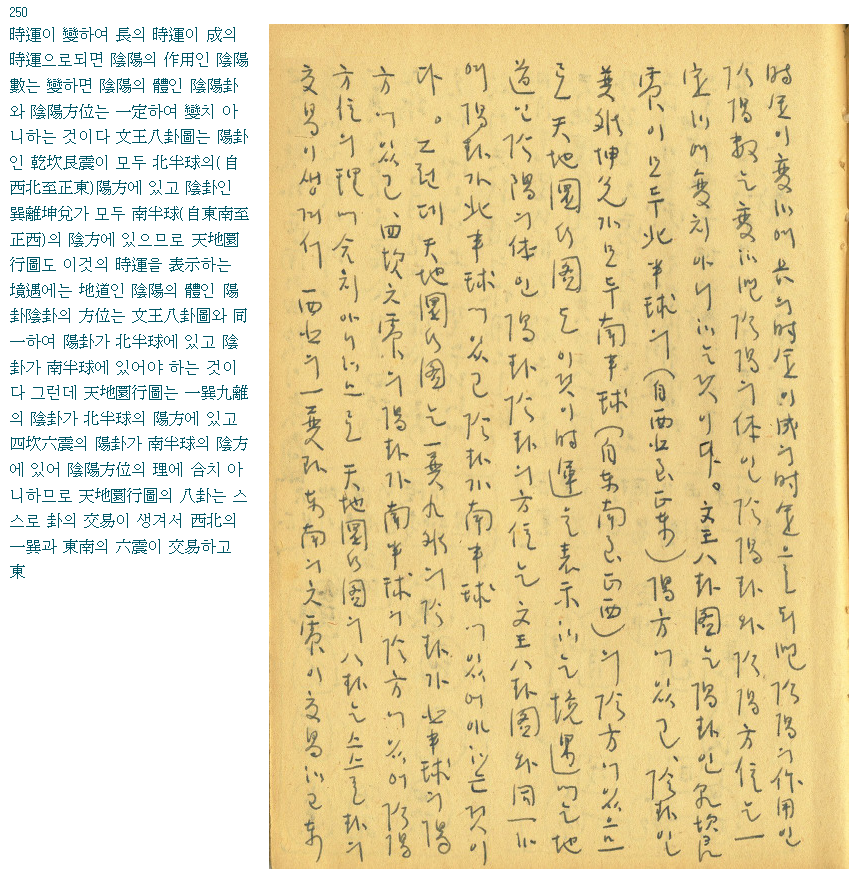 250
時運이 變하여 長의 時運이 成의
時運으로되면 陰陽의 作用인 陰陽
數는 變하면 陰陽의 體인 陰陽卦
와 陰陽方位는 一定하여 變치 아
니하는 것이다 文王八卦圖는 陽卦
인 乾坎艮震이 모두 北半球의(自
西北至正東)陽方에 있고 陰卦인
巽離坤兌가 모두 南半球(自東南至
正西)의 陰方에 있으므로 天地圜
行圖도 이것의 時運을 表示하는
境遇에는 地道인 陰陽의 體인 陽
卦陰卦의 方位는 文王八卦圖와 同
一하여 陽卦가 北半球에 있고 陰
卦가 南半球에 있어야 하는 것이
다 그런데 天地圜行圖는 一巽九離
의 陰卦가 北半球의 陽方에 있고
四坎六震의 陽卦가 南半球의 陰方
에 있어 陰陽方位의 理에 合치 아
니하므로 天地圜行圖의 八卦는 스
스로 卦의 交易이 생겨서 西北의
一巽과 東南의 六震이 交易하고
東
時運이 変하여 長의 時運이 成의 時運으로 되면 陰陽의 作用인
陰陽数는 変하면 陰陽의 体인 陰陽卦와 陰陽方位는 一
定하여 変치 아니하는 것이다。文王八卦圖는 陽卦인 乾坎艮
震이 모두 北半球의 (自西北至正東) 陽方에 있고、陰卦인
巽離坤兌가 모두 南半球 (自東南至正西)의 陰方에 있으므
로 天地圜行圖도 이것이 時運을 表示하는 境遇에는 地
道인 陰陽의 体인 陽卦陰卦의 方位는 文王八卦圖와 同一하
여 陽卦가 北半球에 있고 陰卦가 南半球에 있어야 하는 것이
다。그런데 天地圜行圖는 一巽九離의 陰卦가 北半球의 陽
方에 있고、四坎六震의 陽卦가 南半球의 陰方에 있어 陰陽
方位의 理에 合치 아니하므로 天地圜行圖의 八卦는 스스로 卦의
交易이 생겨서 西北의 一巽과 東南의 六震이 交易하고 東